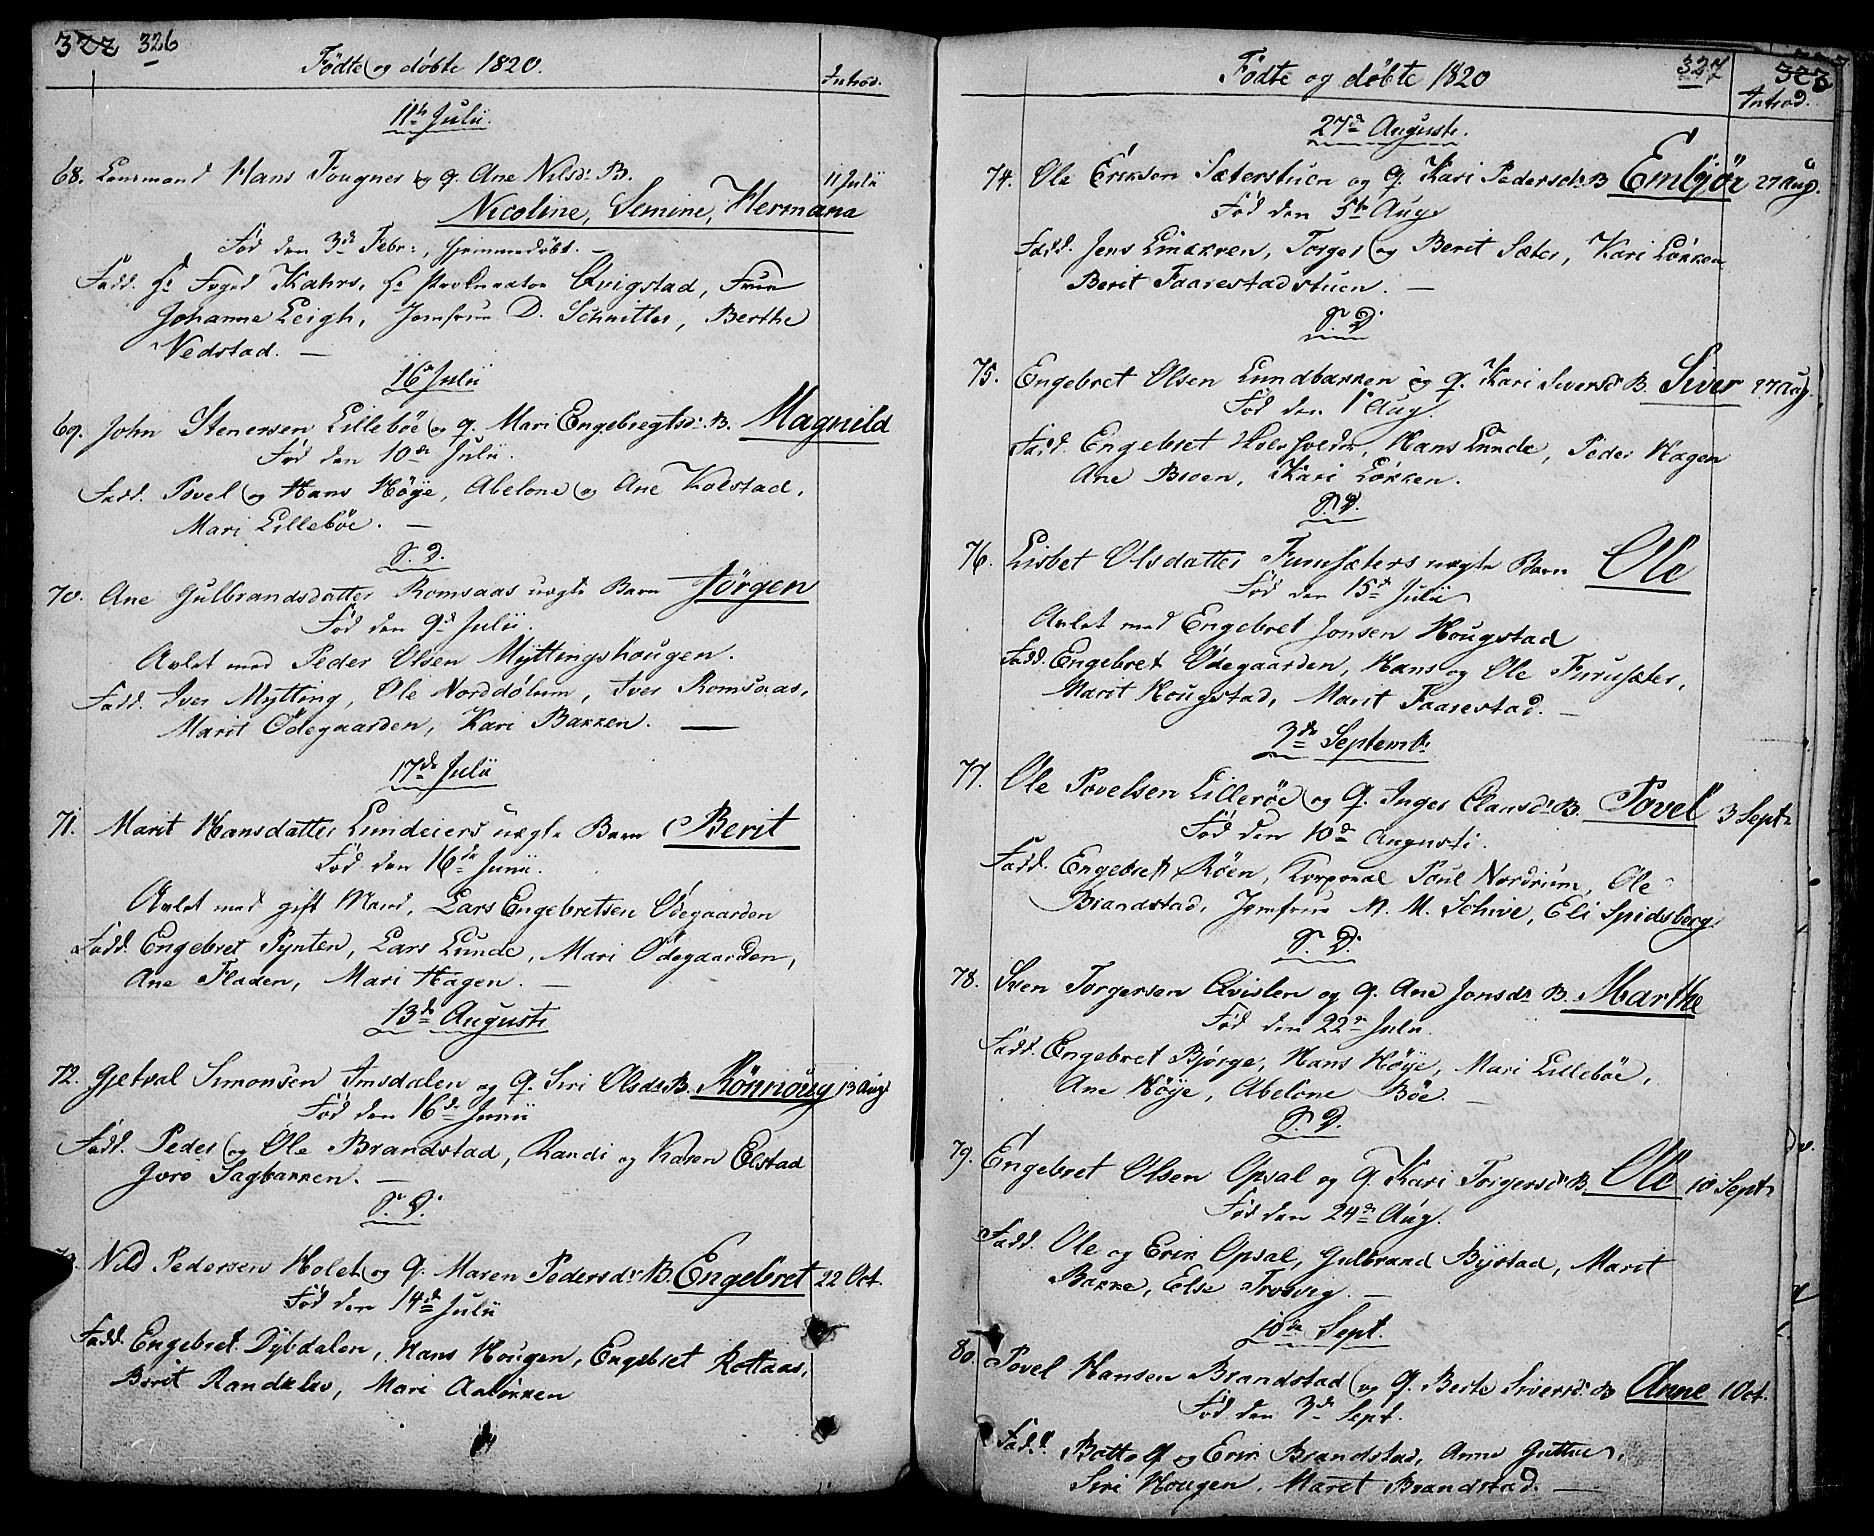 322 326
Födte og döbte 1820.
Introd.
11te Julii.
68. Lensmand Hans Tougner og q. Ane Nilsd. B. 11 Julii
Nicoline, Semine, Hermana
Fød den 3de Febr:, hjemmedøbt. —
Fadd. Hr Foged Kahrs, Hr Prokurator Qvigstad, Frue
Johanne Leigh, Jomfrue D. Schnitler, Berthe
Nedstad. —
16 Julii
69. John Stenersen Lillebøe og q. Mari Engebregtsd. B. Magnild
Fød den 10de Julii.
Fadd. Povel og Hans Høye, Abelone og Ane Kolstad,
Mari Lillebøe. —
S. D.
70. Ane Gulbrandsdatter Romsaas uægte Barn Jörgen
Fød den 9de Julii.
Avlet med Peder Olsen Myttingshougen.
Fadd. Iver Mytting, Ole Norddølum, Iver Romsaas,
Marit Ödegaarden, Kari Bakken. —
17de Julii
71. Marit Hansdatter Lundeiers uægte Barn Berit
Fød den 16de Junii.
Avlet med gift Mand, Lars Engebretsen Ödegaarden
Fadd. Engebret Pynten, Lars Lunde, Mari Ödegaarden,
Ane Fladen, Mari Hagen. —
13de Augusti
72. Gjetval Simonsen Imsdalen og q. Siri Olsdr B. Rönnoug 13 Aug
Fød den 16de Junii
Fadd. Peder og Ole Brandstad, Randi og Karen Elstad
Joro Sagbakken. —
S. D.
Nils Pedersen Holet og q. Maren Pedersdr B. Engebret 22 Oct.
Fød den 14de Julii
Fadd. Engebret Dybdalen, Hans Hougen, Engebret Rottaas,
Berit Randklev, Mari Aaløkken
Födte og döbte 1820
327 323
Introd.
27de Augusti.
74. Ole Eriksen Sæterstuen og q. Kari Pedersdr B Embjör 27 Aug.
Fød den 5te Aug.
Fadd. Jens Linakren, Torger og Berit Sæter, Kari Løkken
Berit Faarestadstuen. —
S. D.
75. Engebret Olsen Lundbakken og q. Kari Siversdr B. Siver 27 Aug.
Fød den 1e Aug.
Fadd. Engebret, Hans Lunde, Peder Hagen
Ane Broen, Kari Løkken.
S. D.
76. Lisbet Olsdatter Furusæters uægte Barn Ole
Fød den 15de Julii
Avlet med Engebret Jonsen Hougstad
Fadd. Engebret Ödegaarden, Hans og Ole Furusæter,
Marit Hougstad, Marit Faarestad. —
3de Septembr.
77. Ole Povelsen Lillerøe og q. Inger Clausdr B. Povel 3 Septr
Fød den 10de Augusti.
Fadd. Engebret Röen, Korporal Poul Nordrum, Ole
Brandstad, Jomfrue M. M. Schive, Eli Spidsberg.
S. D.
78. Sven Torgersen Qvislen og q. Ane Jonsdr B. Marthe
Fød den 22de Julii.
Fadd. Engebret Bjørge, Hans Høye, Mari Lillebøe,
Ane Høye, Abelone Bøe. —
S. D.
79. Engebret Olsen Opsal og q. Kari Torgersdr B. Ole 10 Septr
Fød den 24de Aug.
Fadd. Ole og Erik Opsal, Gulbrand Bystad, Marit
Bakke, Else Trosvig. —
10de Sept.
80. Povel Hansen Brandstad og q. Berte Siversdr B Anne 1 Oct.
Fød den 3de Sept.
Fadd. Bottolf og Erik Brandstad, Anne Guttue,
Siri Hougen, Maret Brandstad. —